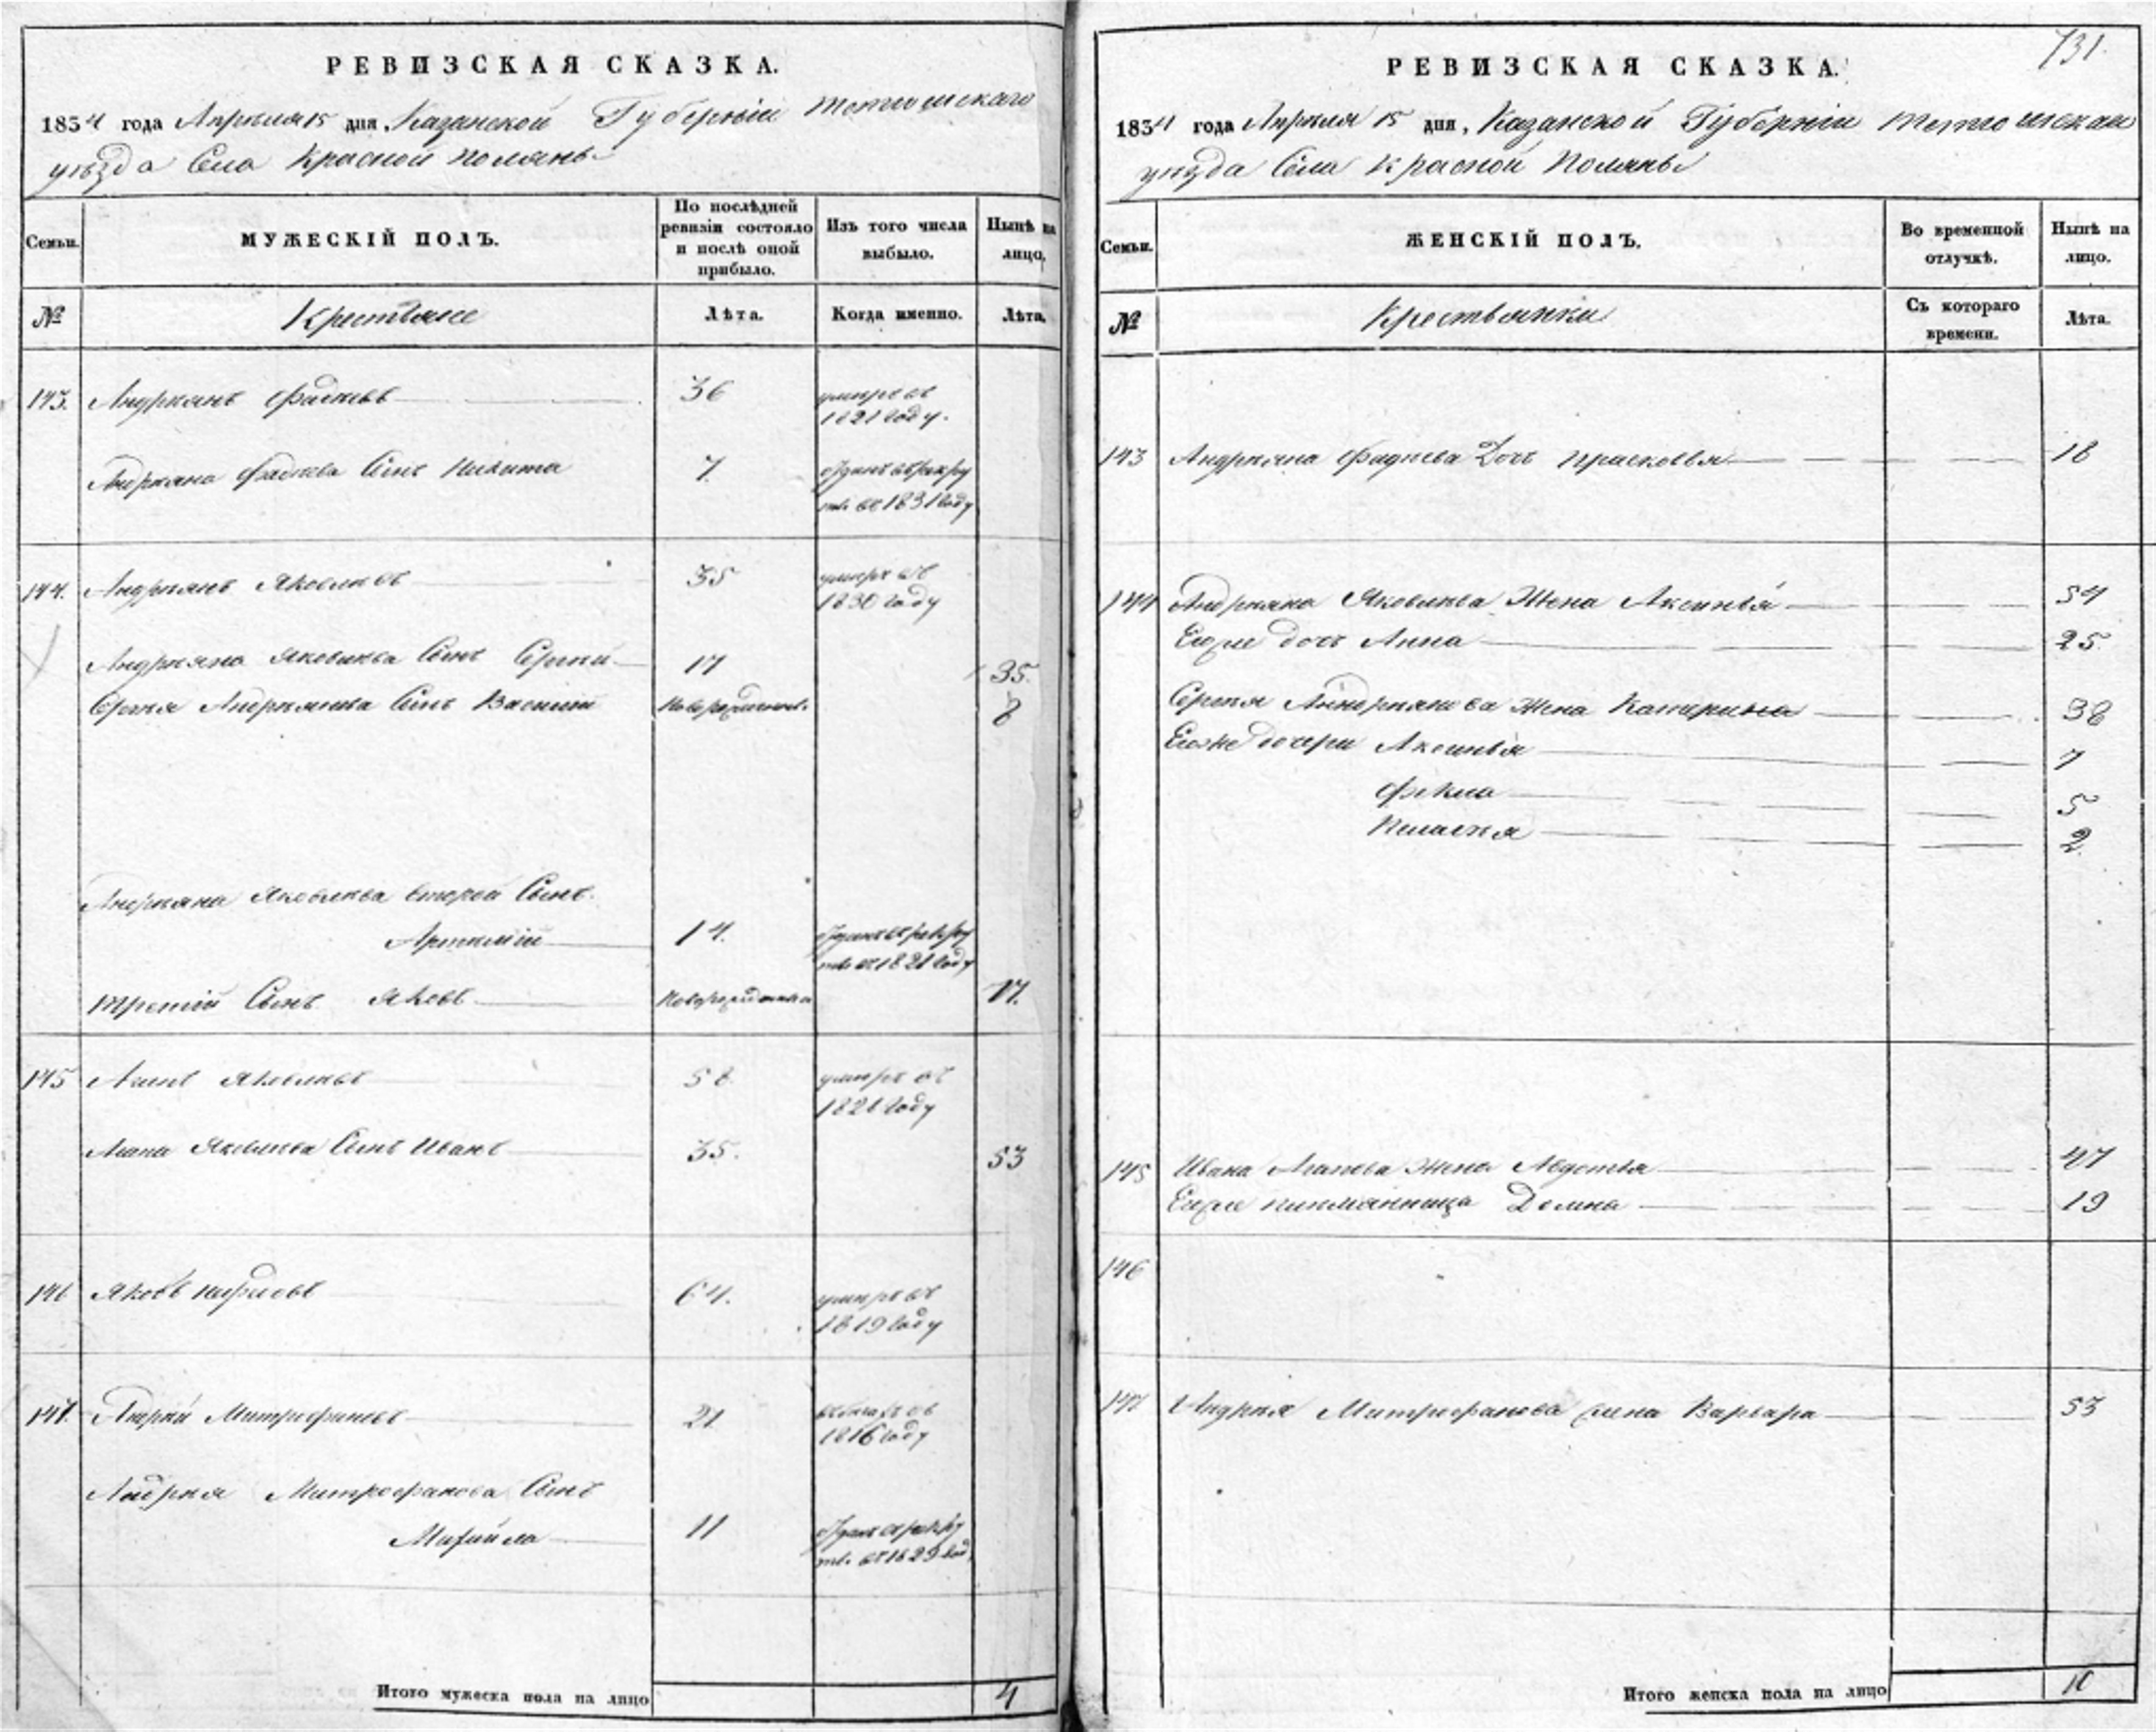 РЕВИЗСКАЯ СКАЗКА.
1834 года Апреля 15 дня, Казанской Губернии Тетюшскаго
уѣзда Села Красной Поляны
Семьи.
МУЖЕСКІЙ ПОЛЪ.
По послѣдней
ревизіи состояло
и послѣ оной
прибыло.
Изъ того числа
выбыло.
Нынѣ на
лицо,
№
Крестьяне
Лѣта.
Когда именно.
Лѣта.
143. Андреянъ Фадѣевъ 36 умеръ въ
1821 году.
Андреяна Фадѣева Сынъ Никита 7. отданъ въ рекру
въ 1831 году
144. Андреянъ Яковлевъ 35 умеръ въ
1830 году
Андреяна Яковлева Сынъ Сергей 17 35.
Сергея Андреянова Сынъ Василий Новорожденъ. 8
Андреяна Яковлева второй Сынъ.
Артемий 14. отданъ въ рекру
въ 1821 году
третий Сынъ Яковъ Новорожденъ 17.
145 Агапъ Яковлевъ 58 умеръ въ
1828 году
Агапа Яковлева Сынъ Иванъ 35. 53
146 Яковъ 64. умеръ въ
1819 году
147. Андрей Митрофановъ 21 въ
1816 году
Андрея Митрофанова Сынъ
Михайла 11 отданъ въ рекру
въ 1829 год
Итого мужеска пола на лицо 4
731.
РЕВИЗСКАЯ СКАЗКА.
1834 года Апреля 15 дня, Казанской Губернии Тетюшскаго
уѣзда Села Красной Поляны
Семьи.
ЖЕНСКІЙ ПОЛЪ.
Во временной
отлучкѣ.
Нынѣ на
лицо.
№
Крестьянки
Съ котораго
времени.
Лѣта.
143 Андреяна Фадѣева Дочь Прасковья 18
144 Андреяна Яковлева Жена Аксинья 54
Егоже дочь Анна 25.
Сергея Андреянова Жена Катерина 38
Егоже дочери Аксинья 7
Фекла 5
2
145 Ивана Агапова Жена Авдотья 47
Егоже племянница Домна 19
146
147 Андрея Митрофанова жена Варвара 53
Итого женска пола на лицо 10